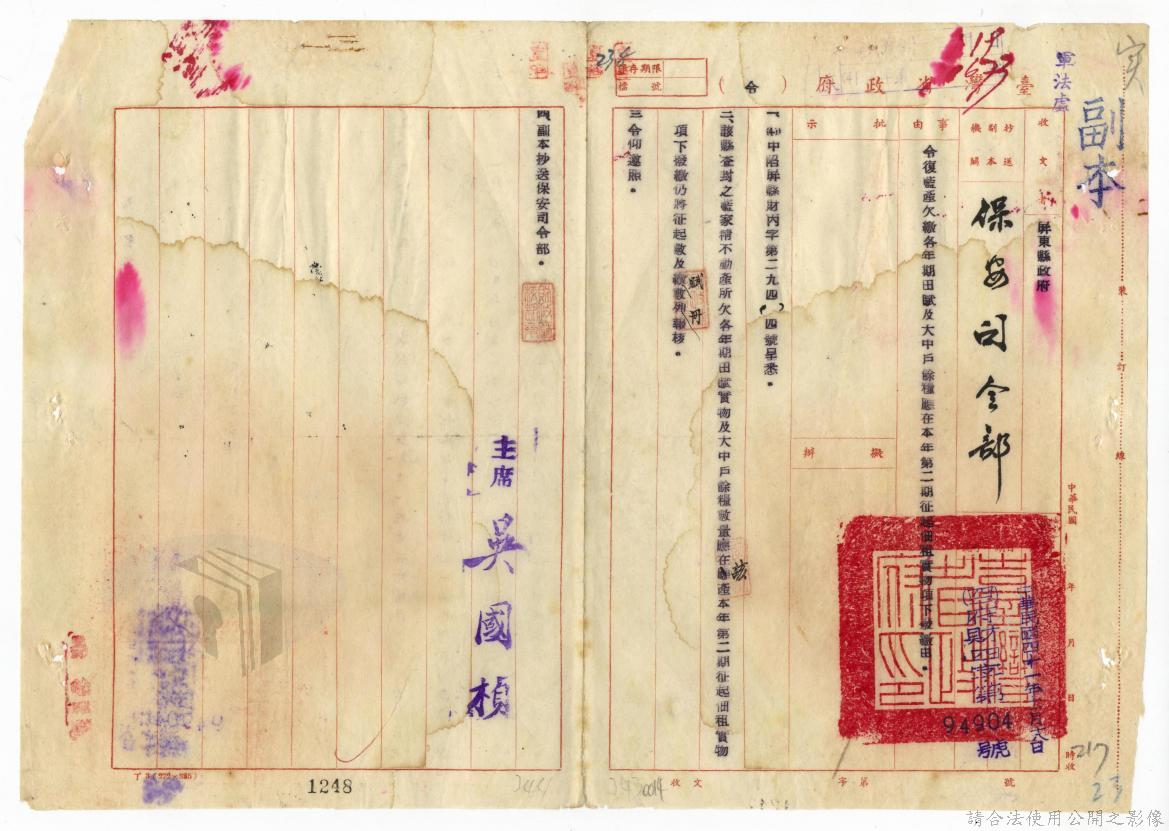 實
副本
軍法處
臺灣省政府（令）
保存期限
檔號
234
收文者
屏東縣政府
抄送副本機關
保安司令部
事由
令復藍產欠繳各年期田賦及大中戶餘糧應在本年第二期征起佃租實物項下撥繳由。
批示
擬辦
中華民國 年 月 日 時收
中華民國四十一年
94904
號
裝 訂 線
財丙字第二九四
四號呈悉。
二、該縣查封之藍家精不動產所欠各年期田賦實物及大中戶餘糧數量應在該產本年第二期征起佃租實物
項下撥繳仍將征起數及撥數列報核。
賦
三、令仰遵照。
四、副本抄送保安司令部。
主席 吳國楨
收文 字第 號
217
23
1248
344
請合法使用公開之影像